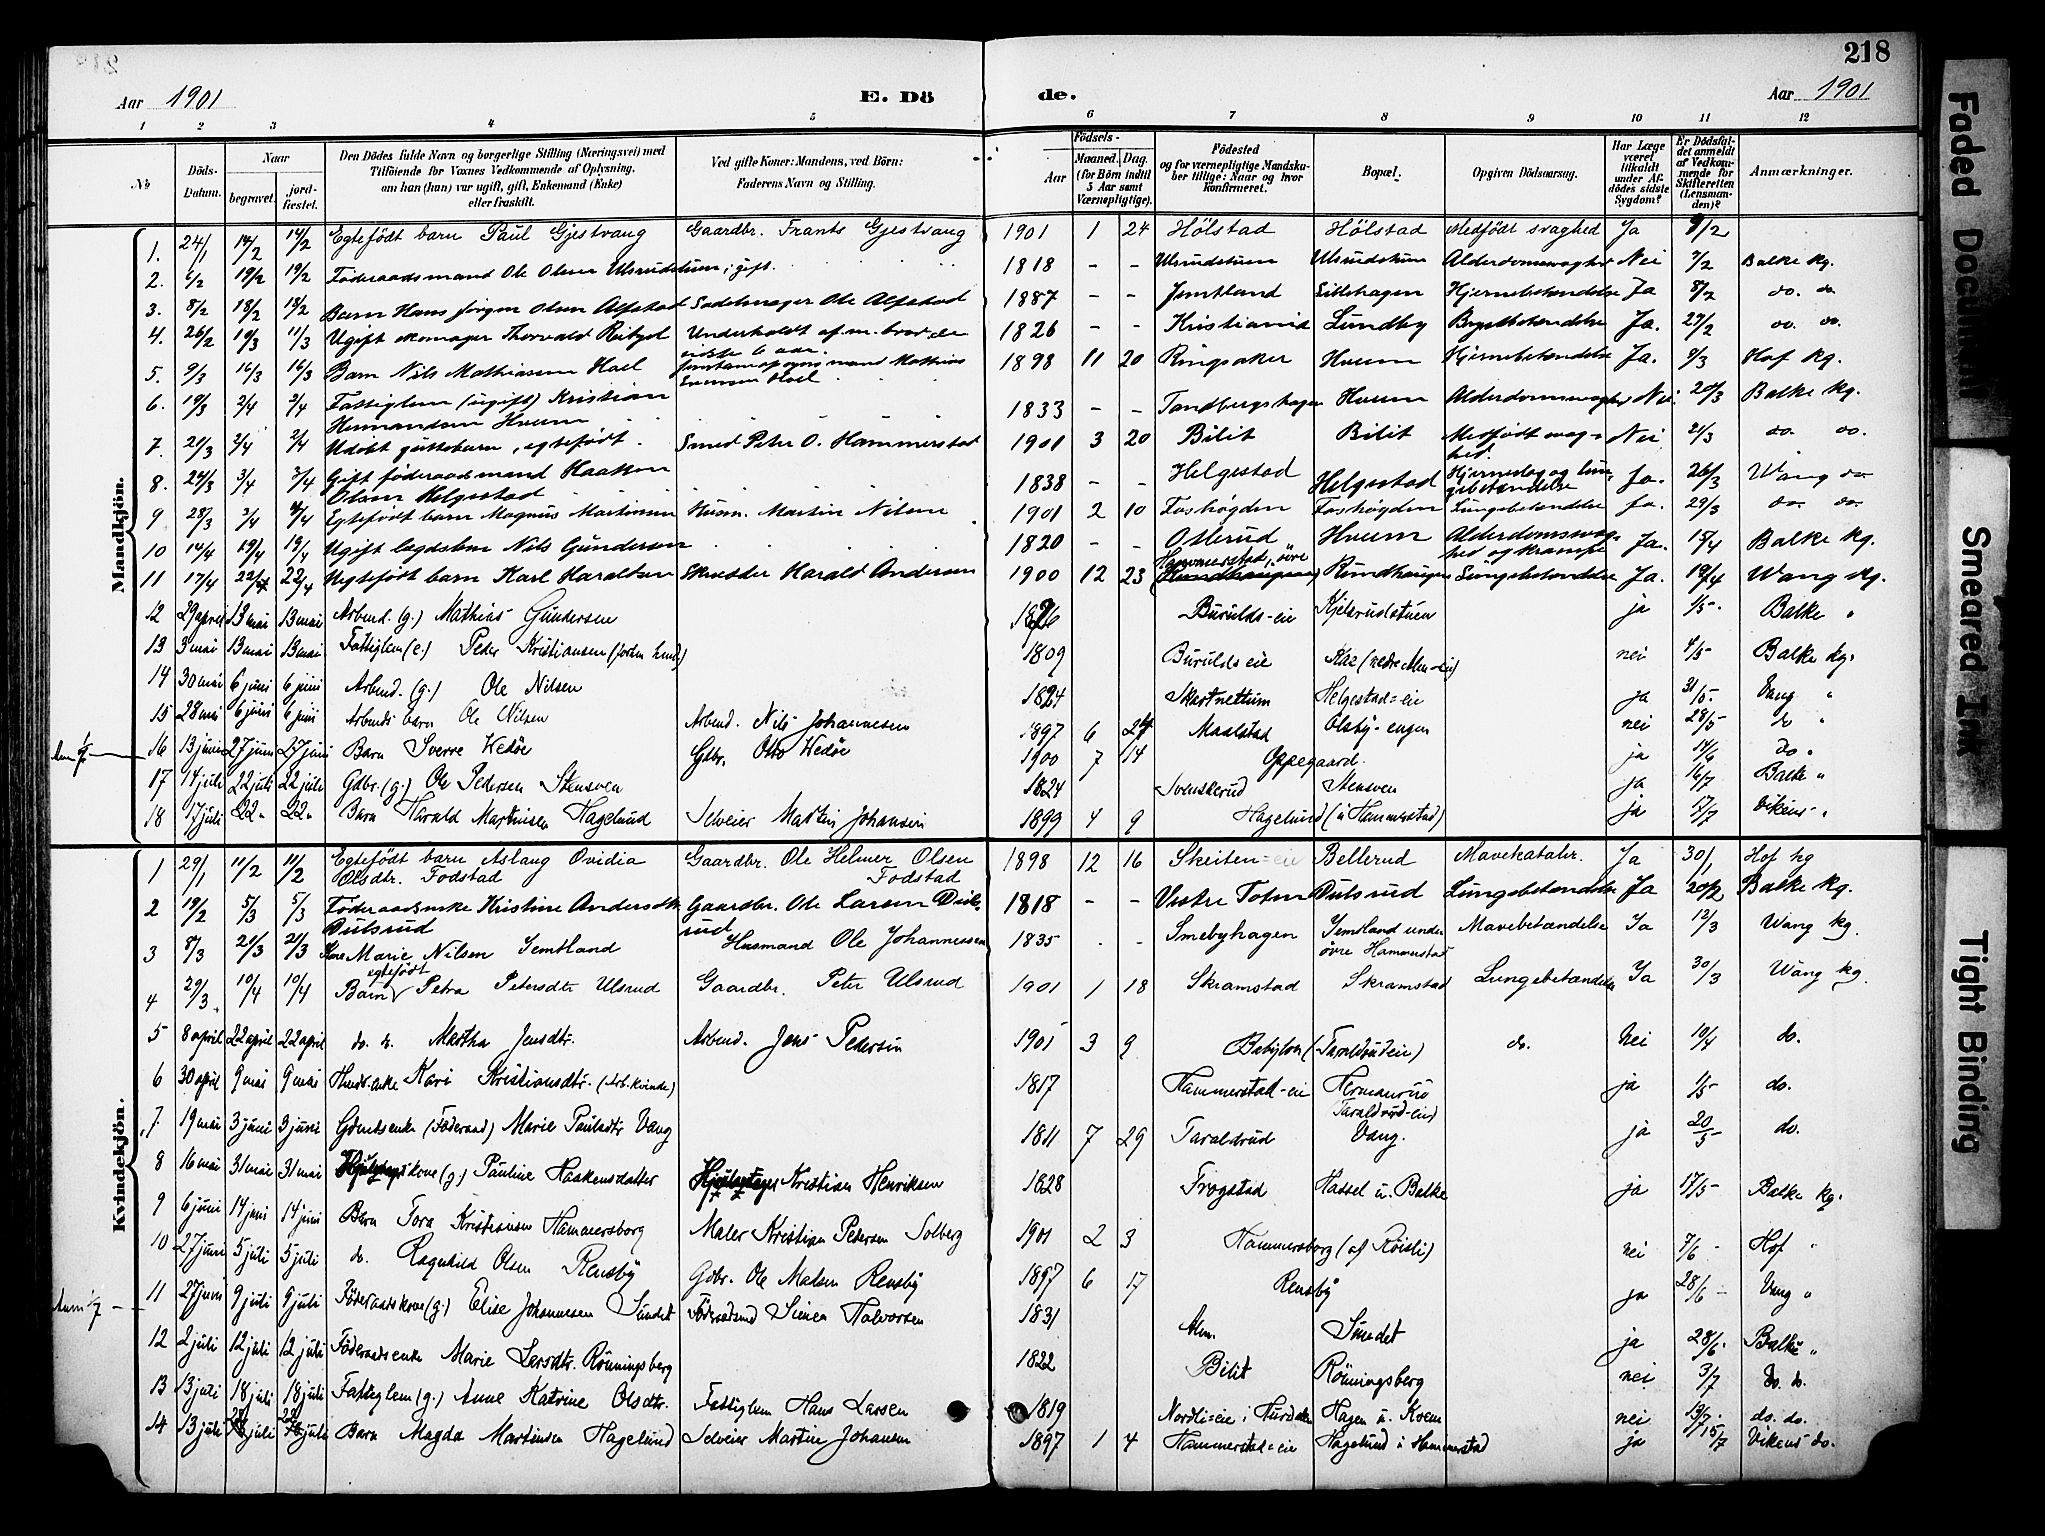 218
Aar 1901 E. Dö de. Aar 1901
1 2 3 4 5 6 7 8 9 10 11 12
No Döds-Datum. Naar begravet. jord-fæstet. Den Dödes fulde Navn og borgerlige Stilling (Næringsvei) med Tilföiende for Voxnes Vedkommende af Oplysning, om han (hun) var ugift, gift, Enkemand (Enke) eller fraskilt. Ved gifte Koner: Mandens, ved Börn: Faderens Navn og Stilling. Födsels- Aar Maaned. Dag. (for Börn indtil 5 Aar samt Værnepligtige). Födested og for værnepligtige Mandskaber tillige: Naar og hvor konfirmeret. Bopæl. Opgiven Dödsaarsag. Har Læge været tilkaldt under Afdödes sidste Sygdom? Er Dödsfaldet anmeldt af Vedkommende for Skifteretten (Lensmanden)? Anmærkninger.
Mandkjön.
1. 24/1 14/2 14/2 Egtefödt barn Paul Gjestvang Gaardbr. Frants Gjestvang 1901 1 24 Hölstad Hölstad Medfödt svaghed Ja 8/2
2. 6/2 19/2 19/2 Föderaadsmand Ole Olsen Ulsrudstuen, gift. 1818 - - Ulsrudstuen Ulsrudstuen Alderdomssvaghed Nei 7/2 Balke kg.
3. 8/2 18/2 18/2 Barn Hans Jörgen Olsen Alfstad Sadelmager Ole Alfstad 1887 - - Jemtland Lillehagen Hjernebetændelse Ja 8/2 do. do
4. 26/2 19/3 11/3 Ugift skomager Thorvald Underholdt af m. bror de sidste 6 aar. 1826 - - Kristiania Lundby Brystbetændelse Ja. 27/2 do. do.
5. 9/3 16/3 16/3 Barn Nils Mathiassen Hoel mand Mathias Evensen Hoel 1898 11 20 Ringsaker Hveem Hjernebetændelse Ja. 9/3 Hof kg.
6. 19/3 2/4 2/4 Fattiglem (ugift) Kristian Hermandsen Hveem 1833 - - Tandbergshagen Hveem Alderdomssvaghed Nei. 20/3 Balke kg.
7. 21/3 2/4 2/4 Udöbt guttebarn, egtefödt. Smed Peter O. Hammerstad 1901 3 20 Bilit Bilit Medfödt svaghed. Nei 21/3 do. do.
8. 24/3 3/4 3/4 Gift föderaadsmand Haakon Olsen Helgestad 1838 - - Helgestad Helgestad Hjerneslag og lungebetændelse Ja. 26/3 Wang do
9 28/3 3/4 4/4 Egtefödt barn Magnus Martinsen Husm. Martin Nilsen 1901 2 10 Foshögden Foshögden Lungebetændelse Ja. 29/3 do. do.
10 14/4 19/4 19/4 Ugift lægdslem Nils Gundersen 1820 - - Osterud Hveem Alderdomssvaghed og krampe Ja. 15/4 Balke kg.
11 17/4 22/4 22/4 Uegtefödt barn Karl Haraldsen Skrædder Harald Andersen 1900 12 23 Hammerstad, övre (Rundhaugen) Rundhaugen Lungebetændelse Ja. 19/4 Wang kg.
12 29 april 13 mai 13 mai Arbmd. (g.) Mathias Gundersen Burulds-eie Kjelsrudstuen ja 1/5- Balke "
13 3 mai 13 mai 13 mai Fattiglem (e.) Peder Kristiansen 1809 Burulds eie nei 4/5 Balke kg.
14 30 mai 6 juni 6 juni Arbmd. (g.) Ole Nilsen 1824 Skartnettum Helgestad-eie ja 31/5- Vang "
15 28 mai 6 juni 6 juni Arbmds barn Ole Nilsen Arbmd. Nils Johannesen 1897 6 24 Maalstad Olsby-engen nei 28/5 do "
16 13 juni 27 juni 27 juni Barn Sverre Hedöe Gdbr. Otto Hedöe 1900 7 14 Oppegaard. ja 14/6 do "
17 14 juli 22 juli 22 juli Gdbr. (g.) Ole Pedersen Stensven 1824 Svenskerud Stensven ja 16/7 Balke "
18 17 juli 22 " 22 " Barn Harald Martinsen Hagelund Selveier Martin Johansen 1899 4 9 Hagelund (u Hammerstad) ja 17/7 Vikens "
Kvindekjön.
1 29/1 11/2 11/2 Egtefödt barn Aslaug Ovidia Olsdtr. Fodstad Gaardbr. Ole Helmer Olsen Fodstad 1898 12 16 Skeiten-eie Bellerud Mavekatahr. Ja 30/1 Hof kg
2 19/2 5/3 5/3 Föderaadsenke Kristine Andersdtr. Dulsrud Gaardbr. Ole Larsen Dulsrud 1818 - - Vestre Toten Dulsrud Lungebetændelse Ja 20/2 Balke kg.
3 8/3 21/3 21/3 Kone Marie Nilsen Jemtland Husmand Ole Johannessen 1835 - - Smebyhagen Jemtland under övre Hammerstad Mavebetændelse Ja 12/3 Wang kg.
4 29/3 10/4 10/4 Barn egtefödt Petra Petersdtr Ulsrud Gaardbr. Peter Ulsrud 1901 1 18 Skramstad Skramstad Lungebetændelse Ja 30/3 Wang kg.
5 8 april 22 april 22 april do. Martha Jensdtr. Arbmd. Jens Pedersen 1901 3 9 Babylon (Taraldrudeie) do. Nei 10/4 do.
6 30 april 9 mai 9 mai Husm.enke Kari Kristiansdtr. (Arb.kvinde) 1817 Hammerstad-eie Hermansrud (Taraldrud-eie) ja 1/5- do.
7. 19 mai 3 juni 3 juni Gdmdsenke (Föderaad) Marie Paulsdtr Vang 1811 7 29 Taraldrud Vang. ja 20/5- do.
8 16 mai 31 mai 31 mai kone (g.) Pauline Haakensdatter Kristian Henriksen 1828 Frogstad Hassel u. Balke ja 17/5- Balke kg.
9 6 juni 14 juni 14 juni Barn Tora Kristiansen Hammersborg Maler Kristian Pedersen Solberg 1901 2 3 Hammersborg (af Röisli) nei 7/6 - Hof "
10 27 juni 5 juli 5 juli do. Ragnhild Olsen Rensby Gdbr. Ole Madsen Rensby 1897 6 17 Rensby ja 28/6 - Vang "
11 27 juni 9 juli 9 juli Föderaadskone (g.) Elise Johannesen Sundet Föderaadsmd Simen Halvorsen 1831 Alm. Sundet ja 28/6 - Balke "
12 2 juli 12 juli 12 juli Föderaadsenke Marie Larsdtr. Rönningsberg 1822 Bilit Rönningsberg nei 3/7 do. do.
13 13 juli 18 juli 18 juli Fattiglem (g.) Anne Katrine Olsdtr. Fattiglem Hans Larsen 1819 Nordlieeie i Hurdalen Hagen u. Kvem nei 13/7. do. do.
14 13 juli juli juli Barn Magda Martinsen Hagelund Selveier Martin Johansen 1897 1 4 Hammerstad-eie Hagelund i Hammerstad ja 15/7 Vikens do.
Faded Document
Smeared Ink
Tight Binding